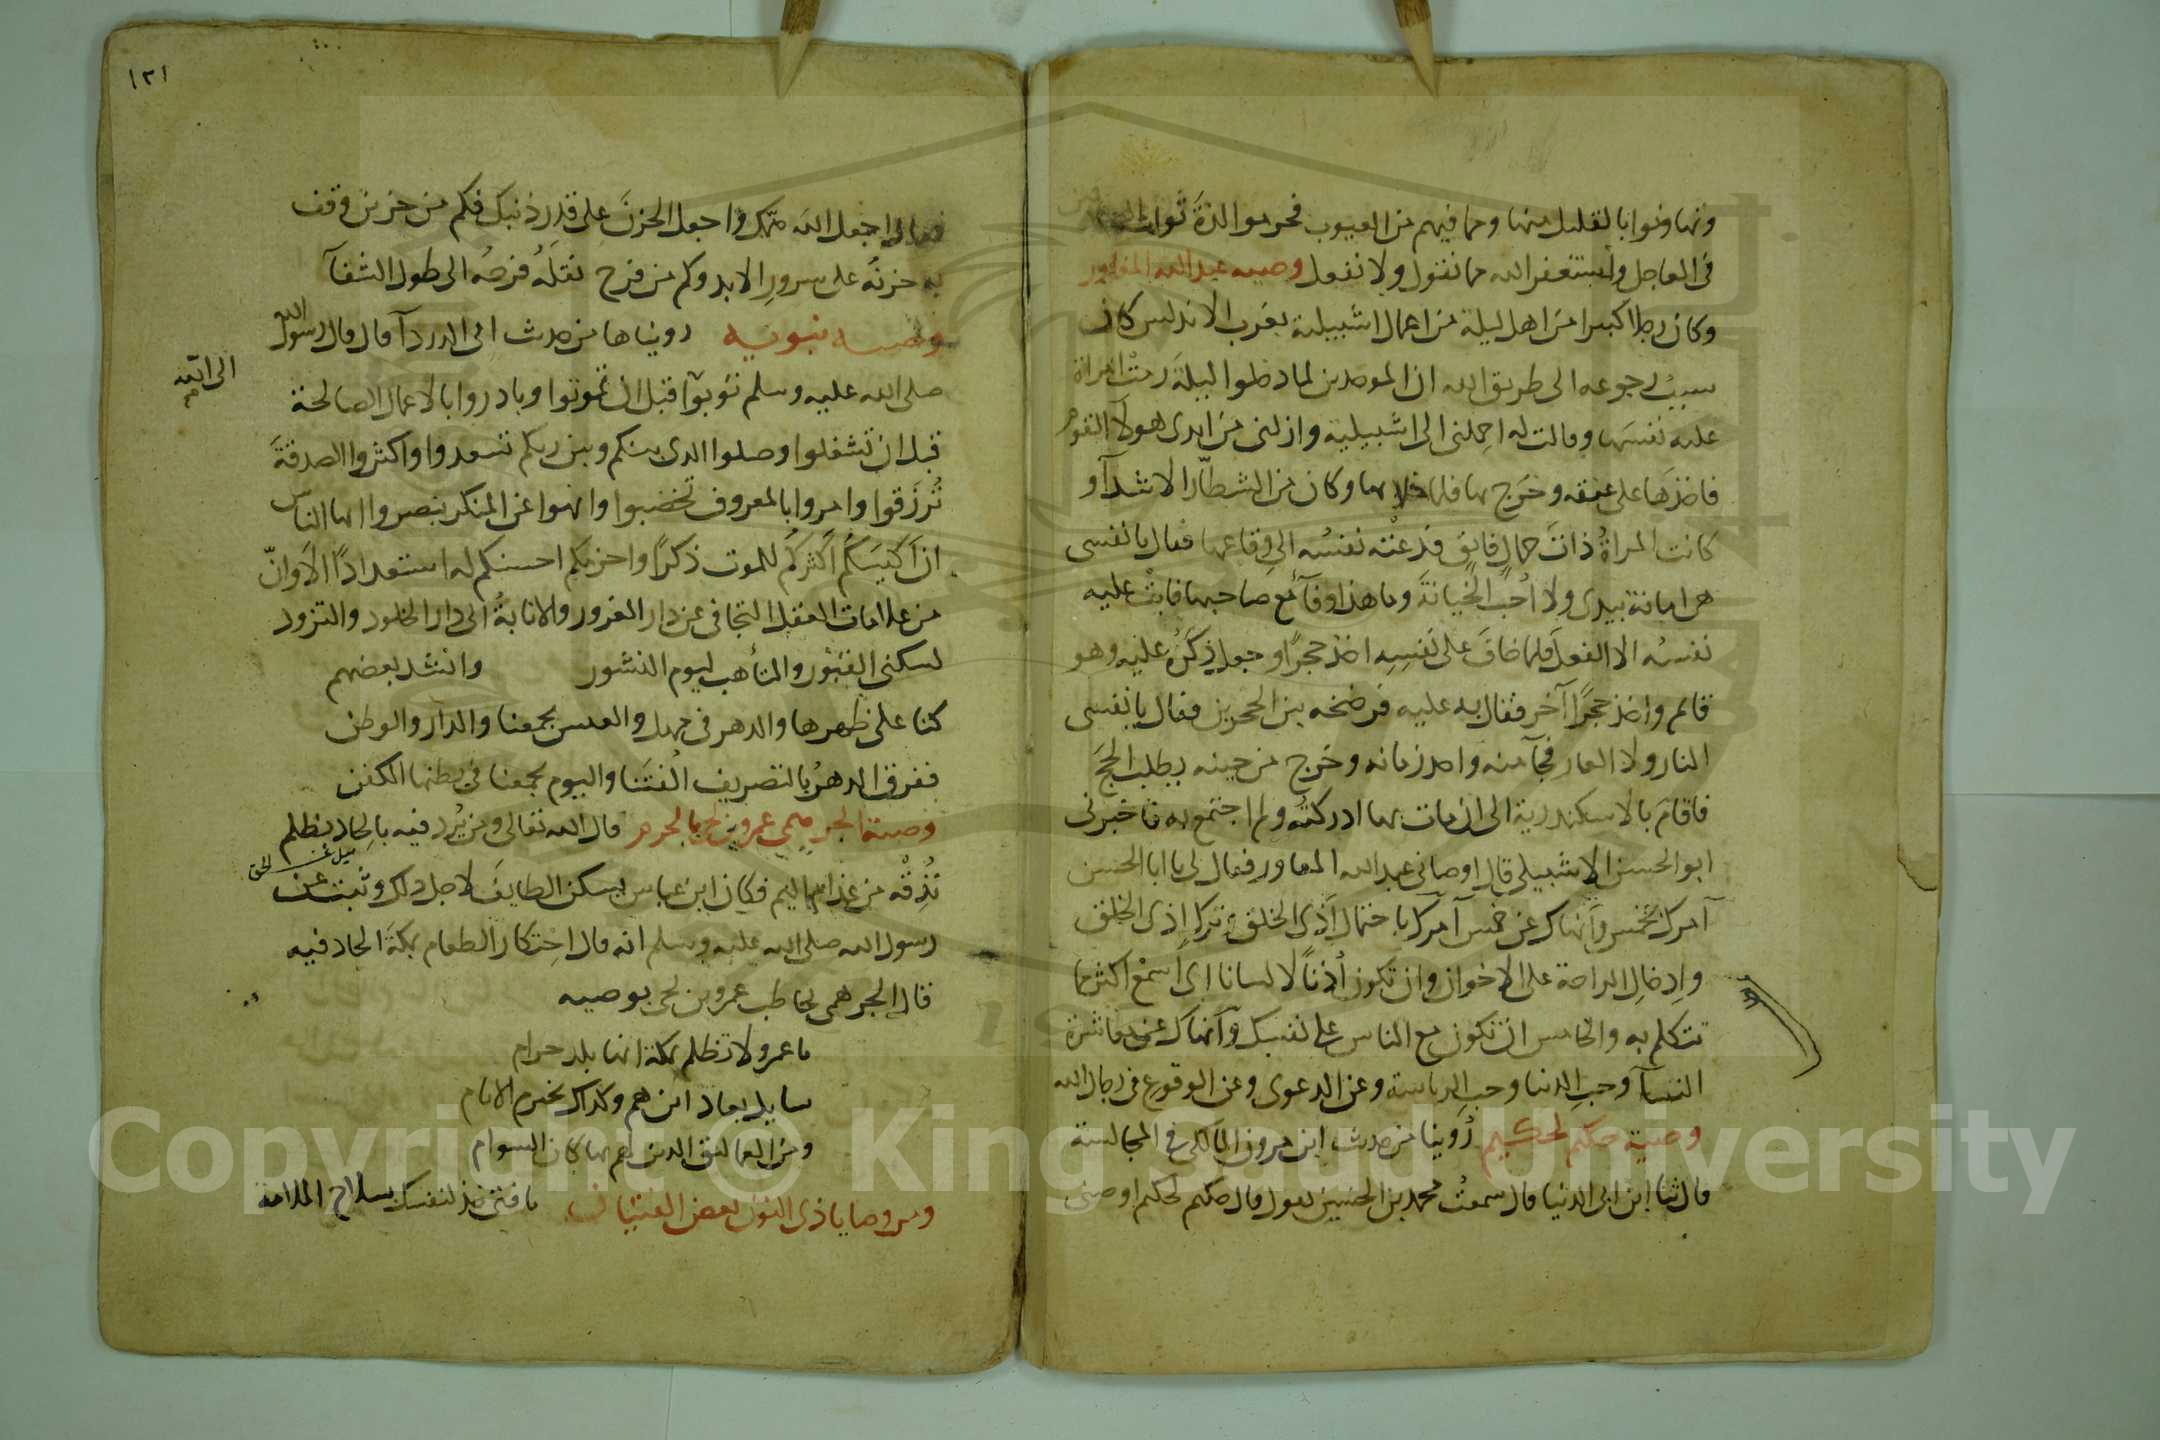 وتهاونوا بالقليل منها وما فيهم من العيوب فحرموا لذة ثواب
في العاجل ونستغفر الله مما نقول ولا نفعل وصيه عبد الله المغاور
وكان رجلا كبيرا من اهل لبلة من اعمال اشبيلية بغرب الاندلس كان
سبب رجوعه الى طريق الله ان الموحدين لما دخلوا لبلة رمت امراة
عليه نفسها وقالت له احملني الى اشبيلية وازلني من ايدى هولآ القوم
فاخذها على عنقه وخرج بها فلما خلا بها وكان من الشطار الاشدآ و
كانت المراة ذات جمال فايق فدعته نفسه الى وقاعها فقال يا نفسى
هى امانة بيدى ولا احب الخيانة وما هذا وفآء مع صاحبها فابت عليه
نفسه الا الفعل فلما خاف على نفسه اخذ حجرا وجعل ذكره عليه وهو
قائم واخذ حجرا آخر فقال به عليه فرضخه بين الحجرين فقال يا نفسى
النار ولا العار فجآ منه واحد زمانه وخرج من حينه يطلب الحج
فاقام بالاسكندرية الى ان مات بها ادركته ولم اجتمع به فاخبرنى
ابو الحسن الاشبيلي قال اوصانى عبد الله المغاور فقال لى يا ابا الحسن
آمرك بخمس وانهاك عن خمس آمرك باحتمال اذى الخلق وترك اذى الخلق
وادخال الراحة على الاخوان وان تكون اذنا لا لسانا اى اسمع اكثر مما
تتكلم به والخامس ان تكون مع الناس على نفسك وانهاك عن معاشرة
النسآ وحب الدنيا وحب الرياسة وعن الدعوى وعن الوقوع فى رجال الله
وصية حكيم لحكيم روينا من حديث ابن مروان المالكى في المجالسة
قال ثنا ابن ابى الدنيا قال سمعت محمد بن الحسين يقول قال حكيم لحكيم اوصنى
١٢١
فقال اجعل الله همك واجعل الحزن على قدر ذنبك فكم من حزين وقف
به حزنه على سرور الابد وكم من فرح نقله فرحه الى طول الشقآ
وصيه نبويه روينا ها من حديث ابى الدردآ قال قال رسول الله
صلى الله عليه وسلم توبوآ قبل ان تموتوا وبادروا بالاعمال الصالحة
الى الله
قبل ان تشغلوا وصلوا الذى بينكم وبين ربكم تسعدوا واكثروا الصدقة
ترزقوا وامروا بالمعروف تخصبوا وانهوا عن المنكر تنصروا ايها الناس
ان اكيسكم اكثركم للموت ذكرا واحزمكم احسنكم له استعدادا الا وان
من علامات العقل التجافى عن دار الغرور والانابة الى دار الخلود والتزود
لسكنى القبور والتأهب ليوم النشور وانشد بعضهم
كنا على ظهرها والدهر فى مهل والعيش يجمعنا والدار والوطن
ففرق الدهر بالتصريف الفتنا واليوم يجمعنا في بطنها الكفن
وصية الجرهمى عمرو بن لحى بالحرم قال الله تعالى ومن يرد فيه بالحاد بظلم
نذقه من عذاب اليم فكان ابن عباس يسكن الطايف لاجل ذلك وثبت عن
رسول الله صلى الله عليه وسلم انه قال احتكار الطعام بمكة الحاد فيه
قال الجرهمى يخاطب عمرو بن لحى بوصيه
يا عمرو لا تظلم بمكة انها بلد حرام
سايل بعاد اين هم وكذاك تخترم الانام
ومن العماليق الذين لهم بها كان السوام
ومن وصايا ذى النون لبعض الفتيان يا فتى خذ لنفسك بسلاح الملامة